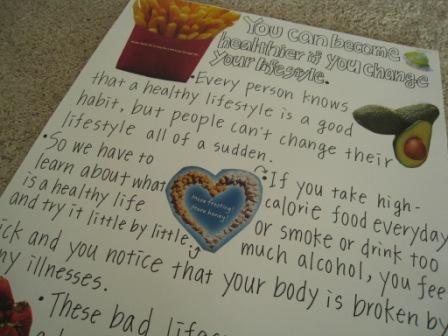 You can become
healthier if you change
your lifestyle.
•Every person knows
that a healthy lifestyle is a good
habit, but people can't change their
lifestyle all of a sudden.
•So we have to
learn about what
is a healthy life
and try it little by little.
More frosting!
More honey!
•If you take high-
calorie food everyday
or smoke or drink too
much alcohol, you fee
ick and you notice that your body is broken by
ny illnesses.
•These bad lifes